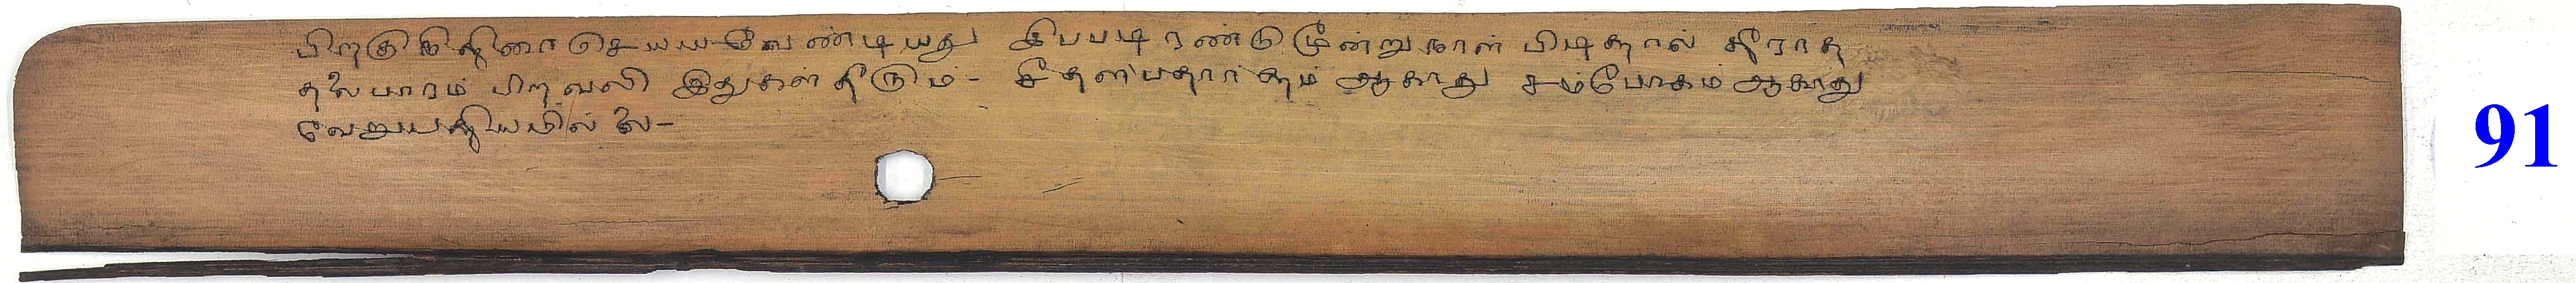 பிறகு கிஷினா செயய வேண்டியது இபபடி ரண்டு மூன்று நாள் பிடிசூால் தீராத
தலைபாரம் பிறவலி இதுகள் தீரும் - சீதளபதார்தம் ஆகாது சம்போகம் ஆகாது
வேறு பத்தியமில்லை -
91